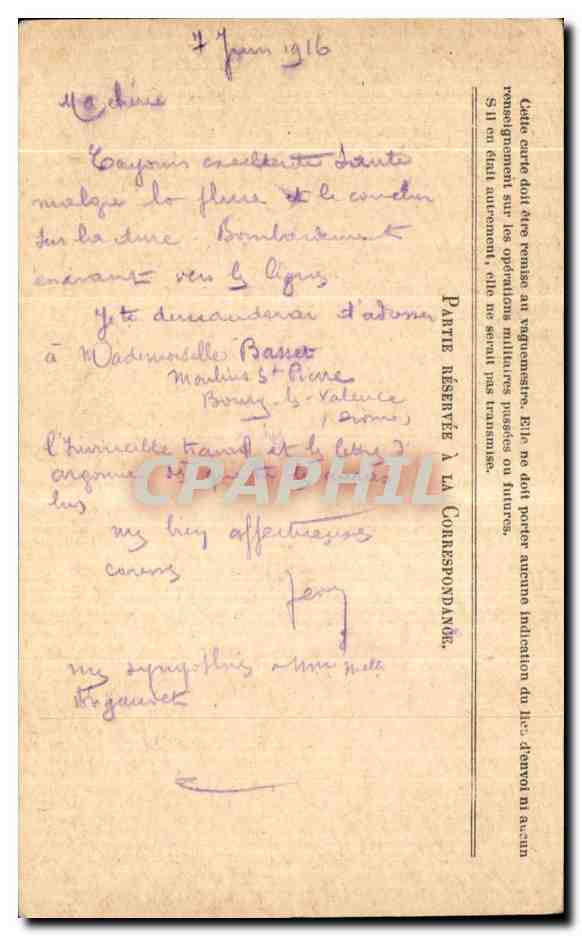 7 Juin 1916
Ma chérie
Toujours excellente santé
malgré la pluie et le coucher
sur la dure. Bombardement
en avant vers les lignes.
Je te demanderai d'adresser
à Mademoiselle Basset
Moulins St Pierre
Bourg-les-Valence
(Drome)
l'Invincible et les lettres d'
argonne
lus
mes bien affectueuses
caresses
mes sympathies Mme Melle
CPAPHIL
PARTIE RÉSERVÉE À LA CORRESPONDANCE.
Cette carte doit être remise au vaguemestre. Elle ne doit porter aucune indication du lieu d'envoi ni aucun
renseignement sur les opérations militaires passées ou futures.
S'il en était autrement, elle ne serait pas transmise.